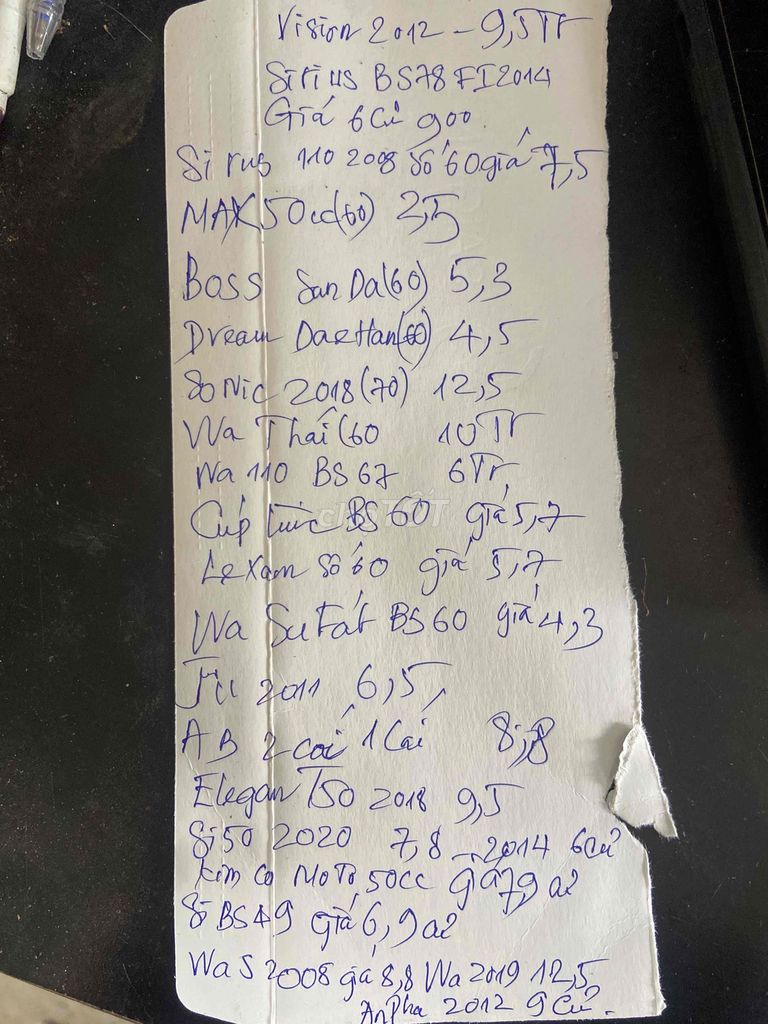 Vision 2012 - 9,5Tr
Sirius BS78 FI2014
Giá 6Củ 900
Si rus 110 2008 số 60 giá 7,5
MAX 50cc(60) 2,5
Boss San Da(60) 5,3
Dream DaeHan(60) 4,5
SoNic 2018(70) 12,5
Wa Thái(60 10Tr
Wa 110 BS 67 6Tr
Cúp BS 60 giá 5,7
LeXam Số 60 giá 5,7
Wa Su BS60 giá 4,3
2011 6,5
AB 2 cái 1 Cái 8,8
Elegan 50 2018 9,5
Si50 2020 7,8 - 2014 6củ
Kim Co MoTo 50cc giá 7,9
Si BS 49 giá 6,9
Wa S 2008 giá 8,8 Wa 2019 12,5
AnPha 2012 9 Củ.
CHỢ TỐT